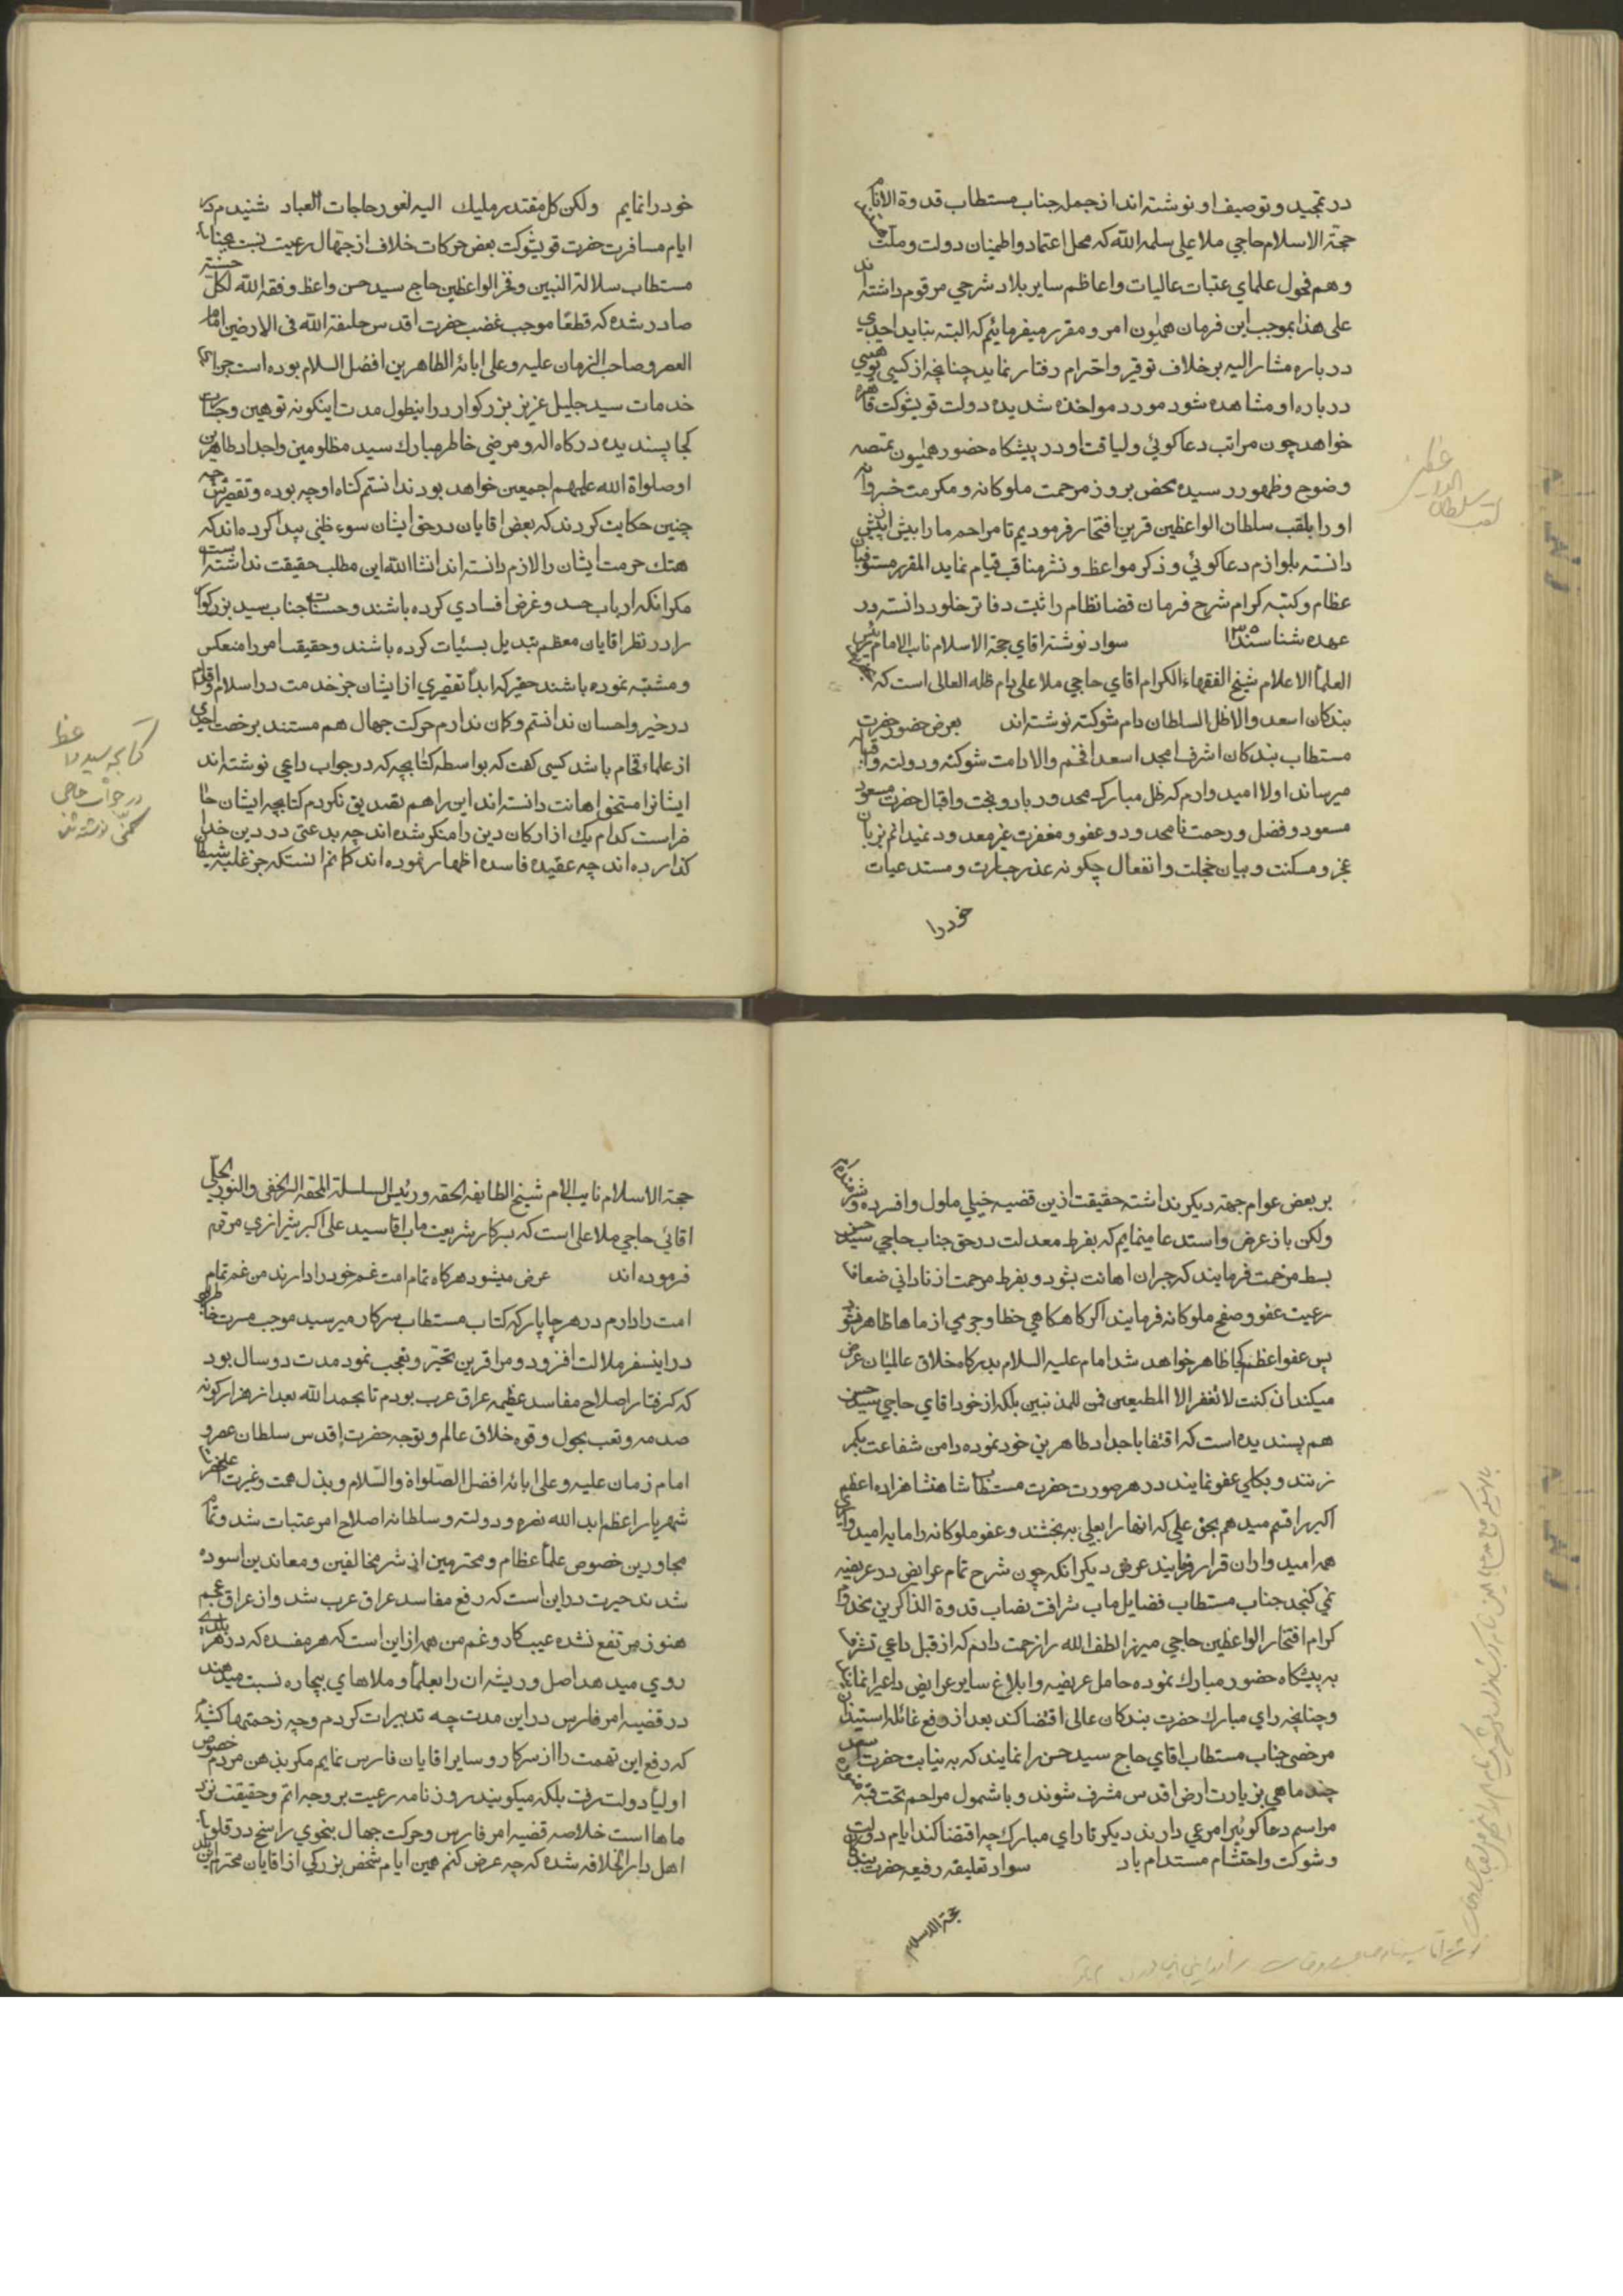 در تمجید و توصیف او نوشته‌اند از جمله جناب مستطاب قدوة الانام
حجة الاسلام حاجي ملا علي سلمه الله که محل اعتماد و اطمینان دولت و ملت
و هم فحول علماي عتبات عالیات و اعاظم سایر بلاد شرحي مرقوم داشته‌اند
علی هذا بموجب این فرمان همیون امر و مقرر میفرمائیم که البته نباید احدي
درباره مشار الیه بر خلاف توقیر و احترام رفتار نماید چنانچه از کسي توهیني
درباره او مشاهده شود مورد مواخذه شدیده دولت قویشوکت قاهره
خواهد چون مراتب دعاکوئي و لیاقت او در پیشکاه حضور همیون بمنصه
وضوح و ظهور رسیده محض بروز مرحمت ملوکانه و مکرمت خسروانه
او را بلقب سلطان الواعظین قرین افتخار فرمودیم تا مراحم ما را بیش از پیش
دانسته بلوازم دعاکوئي و ذکر مواعظ و نشر مناقب قیام نماید المقرر مستوفیان
عظام و کتبه کرام شرح فرمان قضا نظام را ثبت دفاتر خلود دانسته در
عهده شناسند سواد نوشته اقاي حجة الاسلام نایب الامام رئیس
العلماء الاعلام شیخ الفقهاء الکرام اقاي حاجي ملا علی دام ظله العالی است که
بندکان اسعد والا ظل السلطان دام شوکته نوشته‌اند بعرض حضور حضرت
مستطاب بندکان اشرف امجد اسعد افخم والا دامت شوکته و دولته و اقباله
میرساند اولا امیدوارم که ظل مبارک ممدود باد و بخت و اقبال حضرت مسعود
مسعود و فضل و رحمت نامحدود و عفو و مغفرت غیر معدود نمیدانم بزبان
عجز و مسکنت و بیان خجلت و انفعال چکونه عذر جسارت و مستدعیات
خود را
لقب سلطان الواعظین
خود را نمایم ولکن کل مقتدر ملیک الیه لغور حاجات العباد شنیدم در
ایام مسافرت حضرت قویشوکت بعض حرکات خلاف از جهال رعیت نسبت بجناب
مستطاب سلالة النبیین و فخر الواعظین حاج سید حسن واعظ وفقه الله لکل حسنة
صادر شده که قطعا موجب غضب حضرت اقدس خلیفة الله فی الارضین امام
العصر و صاحب الزمان علیه و علی ابائه الطاهرین افضل السلام بوده است جزاي
خدمات سید جلیل عزیز بزرکوار در اینطول مدت اینکونه توهین و جنایت
کجا پسندیده درکاه اله و مرضي خاطر مبارک سید مظلومین و اجداد طاهرین
او صلواة الله علیهم اجمعین خواهد بود ندانستم کناه او چه بوده و تقصیرش چه
چنین حکایت کردند که بعض اقایان در حق ایشان سوء ظني پیدا کرده‌اند که
هتک حرمت ایشان را لازم دانسته‌اند انشا الله این مطلب حقیقت نداشته است
مکر انکه ارباب حسد و غرض افسادي کرده باشند و حسنات جناب سید بزرکوار
را در نظر اقایان معظم تبدیل بسیئات کرده باشند و حقیقت امر را منعکس
و مشتبه نموده باشند حقیر که ابدا تقصیري از ایشان جز خدمت در اسلام و اقدام
در خیر و احسان ندانستم و کمان ندارم حرکت جهال هم مستند برخصت احدي
از علماء فخام باشد کسي کفت که بواسطه کتابچه که در جواب داعي نوشته‌اند
ایشانرا مستحق اهانت دانسته‌اند این را هم تصدیق نکردم کتابچه ایشان حال
حاضر است کدام یک از ارکان دین را منکر شده‌اند چه بدعتی در دین خدا
کذارده‌اند چه عقیده فاسده اظهار نموده‌اند کمانم انستکه جز غلبه شیطان
کتابچه سید واعظ
در جواب حاجي
نوشته شد
بر بعض عوام جهة دیکر نداشته حقیقت ازین قضیه خیلي ملول و افسرده و شرمنده‌ام
ولکن باز عرض و استدعا مینمایم که بفرط معدلت در حق جناب حاجي سید حسن
بسط مرحمت فرمایند که جبران اهانت بشود و بفرط مرحمت از ناداني ضعفاء
رعیت عفو و صفح ملوکانه فرمایند اکر کاهکاهي خطا و جرمي از ماها ظاهر نشود
پس عفو اعظم کجا ظاهر خواهد شد امام علیه السلام بدرکاه خلاق عالمیان عرض
میکند ان کنت لا تغفر الا المطیعین فمن للمذنبین بلکه از خود اقاي حاجي سید حسن
هم پسندیده است که اقتفا باجداد طاهرین خود نموده دامن شفاعت بکمر
زنند و بکلي عفو نمایند در هر صورت حضرت مستطاب شاهنشاهزاده اعظم
اکبر را قسم میدهم بحق علي که انها را بعلي به بخشند و عفو ملوکانه را مایه امیدواري
همه امیدواران قرار فرمایند عرض دیکر انکه چون شرح تمام عرایض در عریضه
نمي کنجد جناب مستطاب فضایل ماب شرافت نصاب قدوة الذاکرین
کرام افتخار الواعظین حاجي میرزا لطف الله را زحمت دادم که از قبل داعي تشرف
به پیشکاه حضور مبارک نموده حامل عریضه و ابلاغ سایر عرایض داعي را نمایند
و چنانچه راي مبارک حضرت بندکان عالی اقتضا کند بعد از رفع غائله استیذان
مرخصي جناب مستطاب اقاي حاج سید حسن را نمایند که به نیابت حضرت اسعد
چند ماهي بزیارت ارض اقدس مشرف شوند و با شمول مراحم تحت قبه منوره
مراسم دعاکوئي را مرعي دارند دیکر تا راي مبارک چه اقتضا کند ایام دولت
و شوکت و احتشام مستدام باد سواد تعلیقه رفیعه حضرت بندکان
حجة الاسلام
حجة الاسلام نایب الامام شیخ الطایفه الحقه و رئیس السلسلة المحقه السر الخفی و النور الجلي
اقائي حاجي ملا علی است که بسرکار شریعتماب اقا سید علی اکبر شیرازي مرقوم
فرموده‌اند عرض میشود هرکاه تمام امت غم خود را دارند من غم تمام
امت را دارم در هر چاپار که کتاب مستطاب سرکار میرسید موجب مسرت خاطر
در اینسفر ملالت افزود و مرا قرین تحیر و تعجب نمود مدت دو سال بود
که کرفتار اصلاح مفاسد عظیمه عراق عرب بودم تا بحمد الله بعد از هزار کونه
صدمه و تعب بحول و قوه خلاق عالم و توجه حضرت اقدس سلطان عصر و
امام زمان علیه و علی ابائه افضل الصلواة و السلام و بذل همت و غیرت اعلیحضرت
شهریار اعظم اید الله نصره و دولته و سلطانه اصلاح امر عتبات شد و تمام
مجاورین خصوص علماء عظام و محترمین از شر مخالفین و معاندین اسوده
شدند حیرت در این است که رفع مفاسد عراق عرب شد و از عراق عجم
هنوز مرتفع نشده عیب کار و غم من همه از این است که هر مفسده که در هر بلدي
روي میدهد اصل و ریشه ان را بعلماء و ملاهاي بیچاره نسبت میدهند
در قضیه امر فارس در این مدت چه تدبیرات کردم و چه زحمتها کشیدم
که رفع این تهمت را از سرکار و سایر اقایان فارس نمایم مکر بذهن مردم خصوص
اولیاء دولت نرفت بلکه میکویند روزنامه رعیت بر وجه اتم و حقیقت نزد
ماها است خلاصه قضیه امر فارس و حرکت جهال بنحوي راسخ در قلوب
اهل دار الخلافه شده که چه عرض کنم همین ایام شخص بزرکي از اقایان محترم این بلد